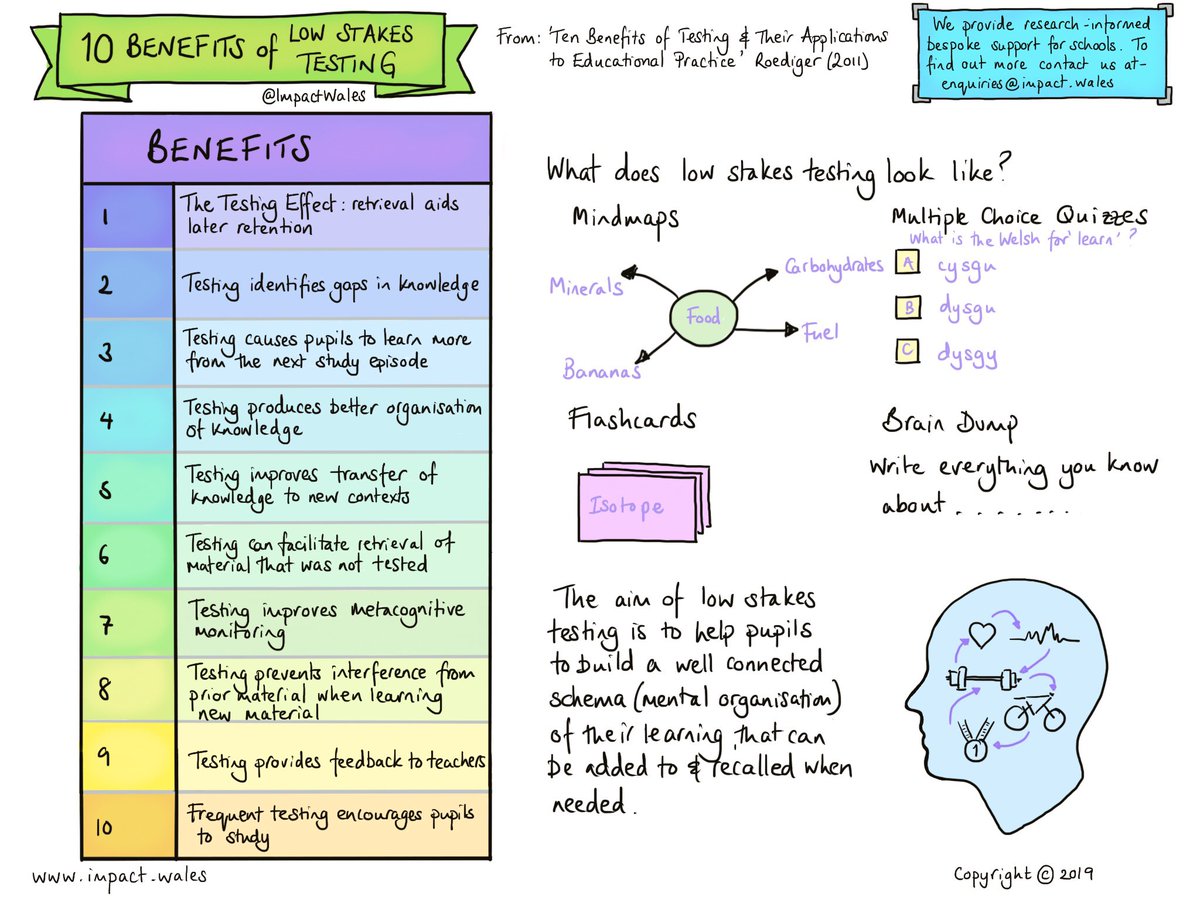 10 BENEFITS of LOW STAKES
TESTING
@ImpactWales
From: 'Ten Benefits of Testing & Their Applications
to Educational Practice' Roediger (2011)
We provide research-informed
bespoke support for schools. To
find out more contact us at-
enquiries@impact.wales
BENEFITS
1
The Testing Effect: retrieval aids
later retention
2
Testing identifies gaps in knowledge
3
Testing causes pupils to learn more
from the next study episode
4
Testing produces better organisation
of knowledge
5
Testing improves transfer of
knowledge to new contexts
6
Testing can facilitate retrieval of
material that was not tested
7
Testing improves metacognitive
monitoring
8
Testing prevents interference from
prior material when learning
new material
9
Testing provides feedback to teachers
10
Frequent testing encourages pupils
to study
What does low stakes testing look like?
Mindmaps
Minerals
Carbohydrates
Food
Fuel
Bananas
Multiple Choice Quizzes
What is the Welsh for 'learn'?
A cysgu
B dysgu
C dysgy
Flashcards
Isotope
Brain Dump
Write everything you know
about . . . . . . .
The aim of low stakes
testing is to help pupils
to build a well connected
schema (mental organisation)
of their learning that can
be added to & recalled when
needed.
1
www.impact.wales
Copyright © 2019